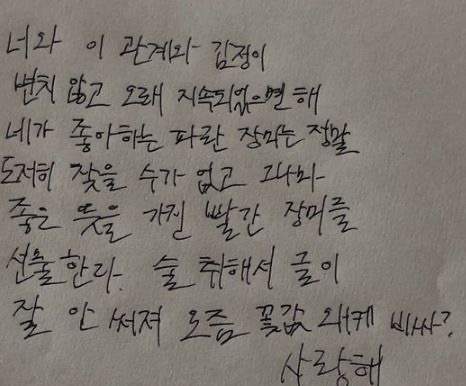 너와 이 관계와 김정이
변치 않고 오래 지속되었으면 해
네가 좋아하는 파란 장미는 정말
도저히 찾을 수가 없고 그나마
좋은 뜻을 가진 빨간 장미를
선물한다. 술 취해서 글이
잘 안 써져 오즘 꽃값 왜케 비싸?
사랑해